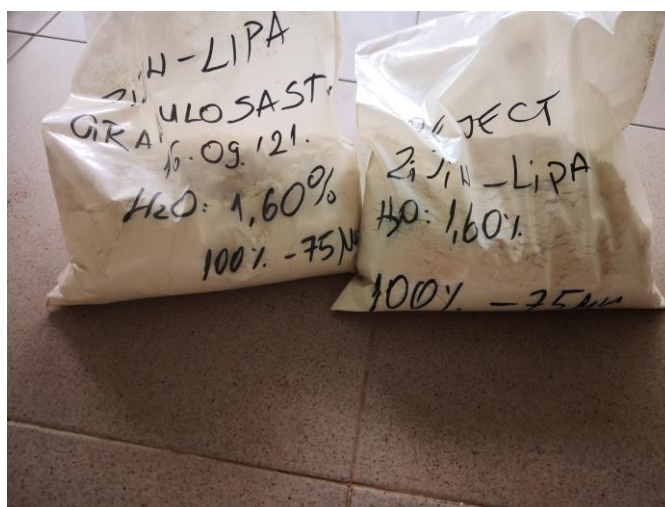 ZIJIN-LIPA
GRANULOSAST.
16.09.'21.
H2O: 1,60%
100% -75µm
REJECT
ZiJiN-LiPA
H2O: 1,60%
100% -75µm